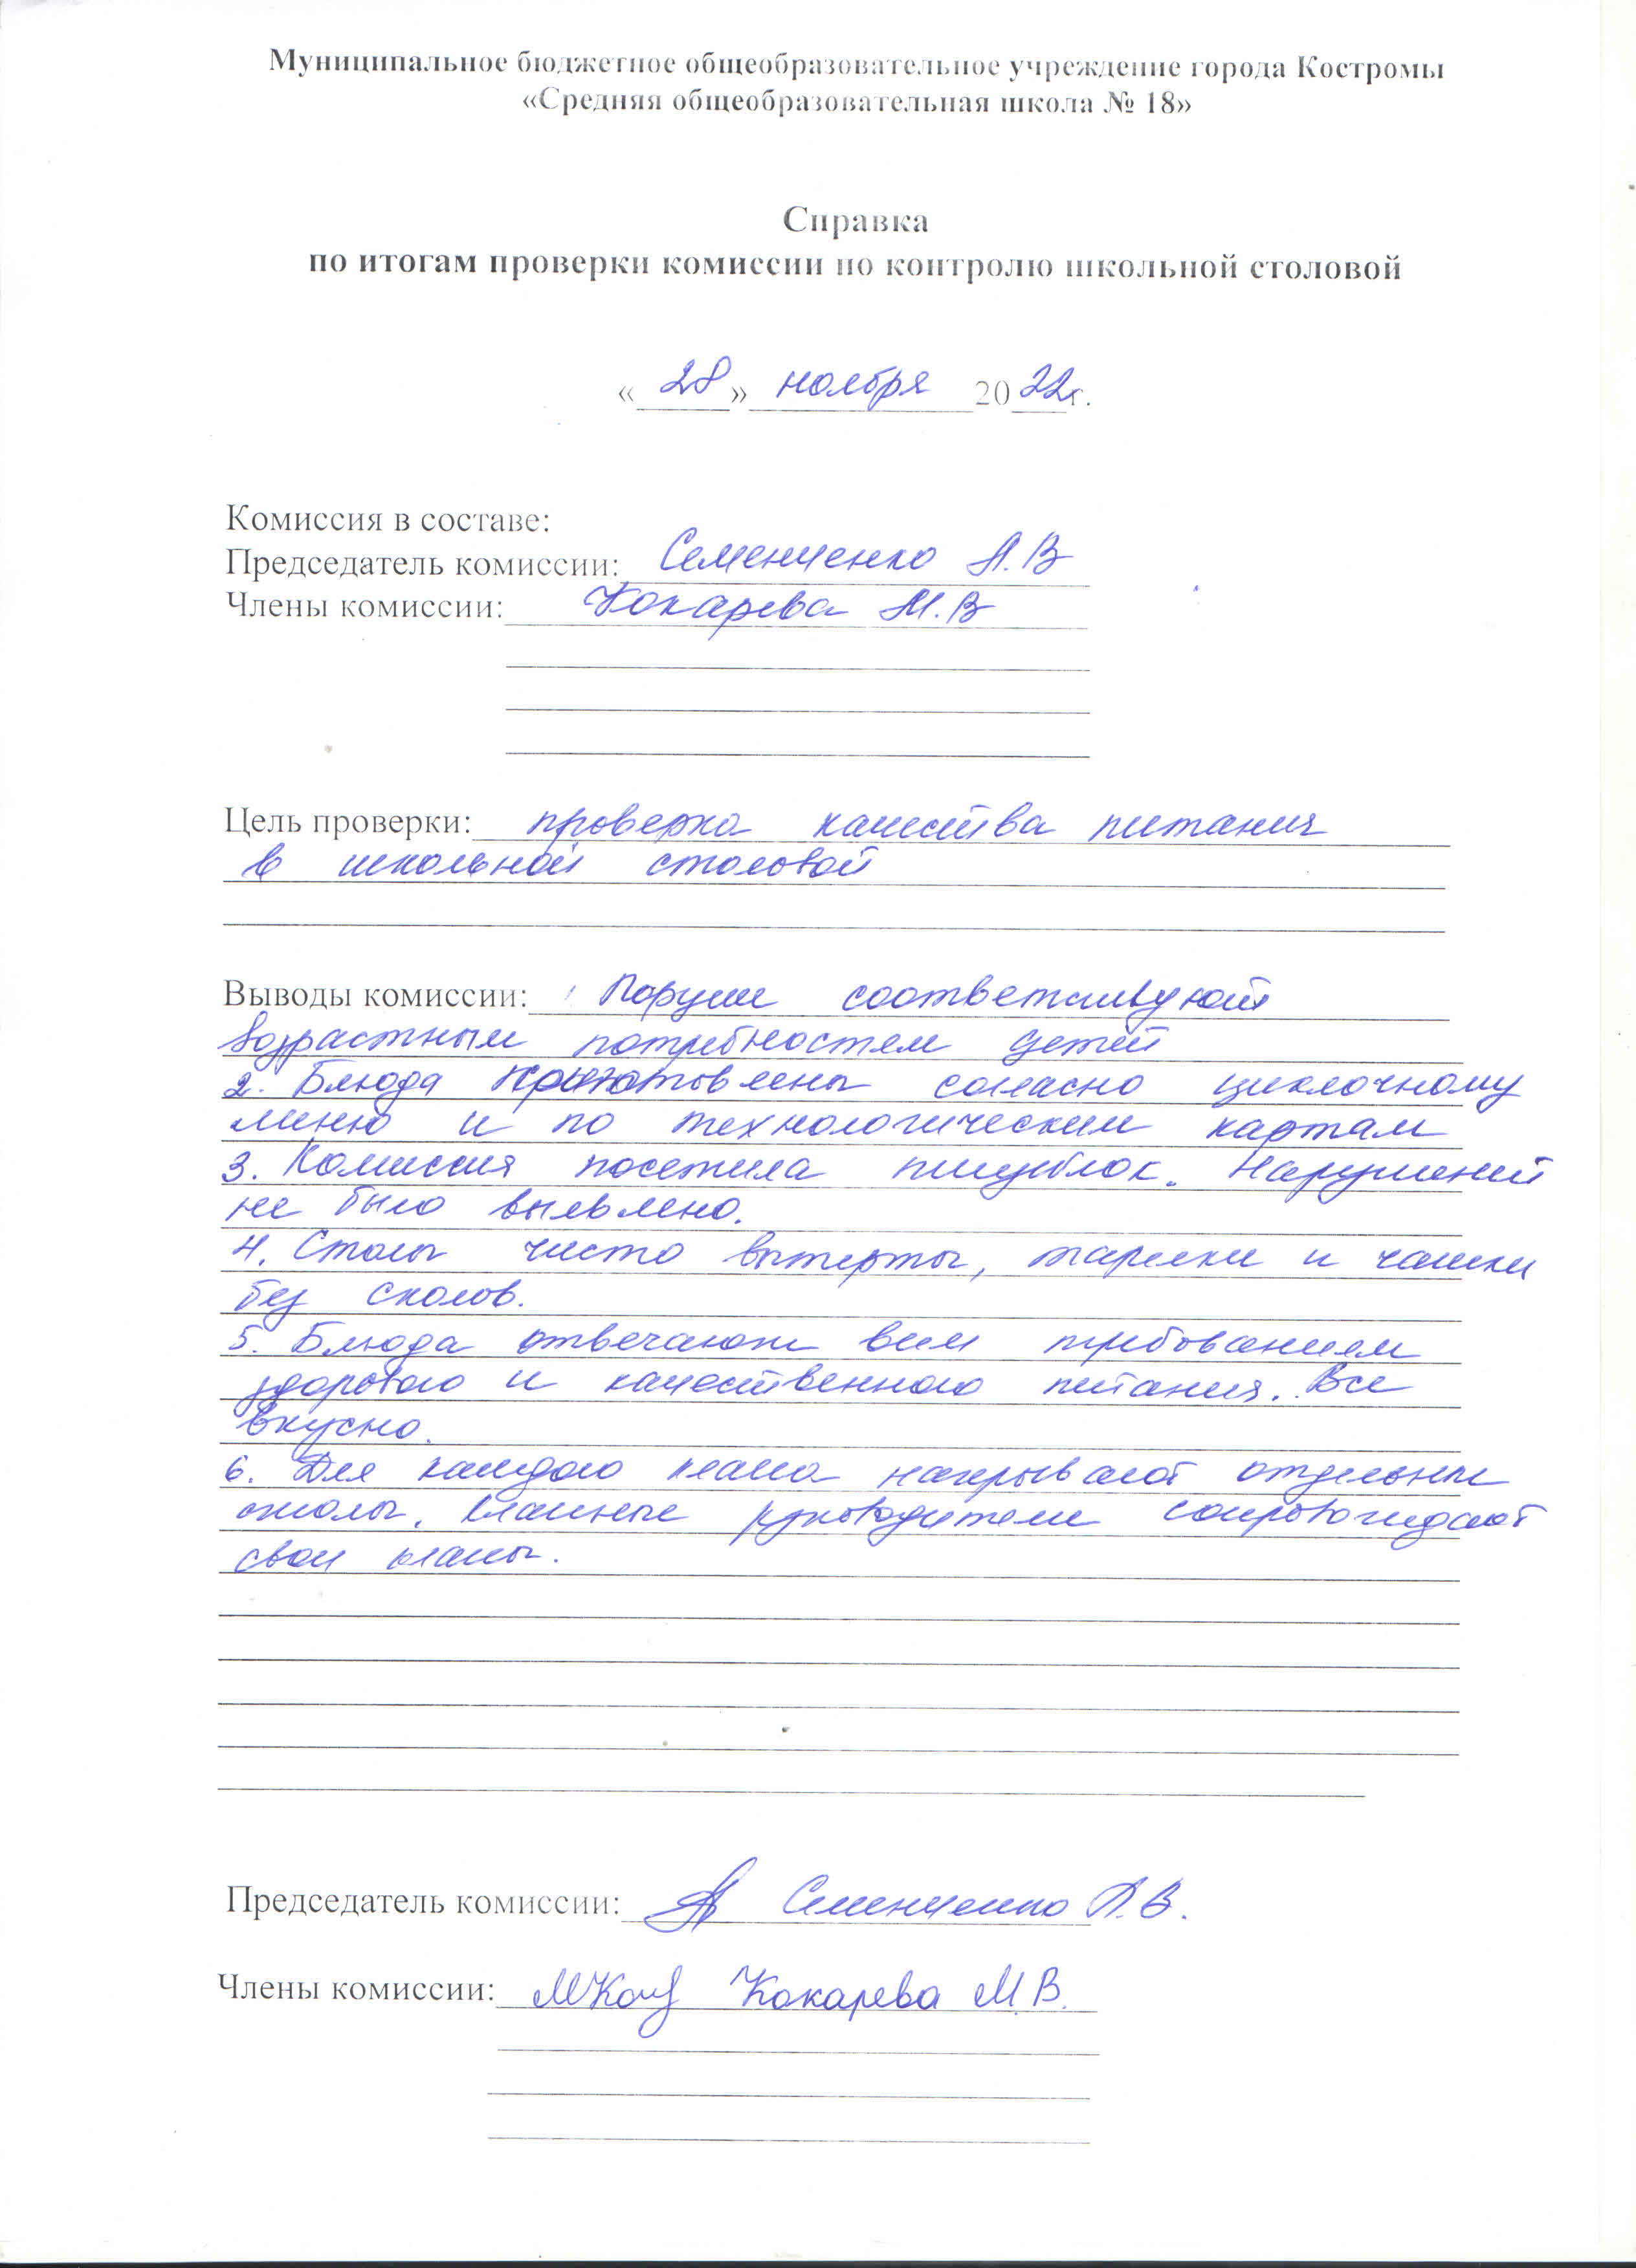 Муниципальное бюджетное общеобразовательное учреждение города Костромы
«Средняя общеобразовательная школа № 18»
Справка
по итогам проверки комиссии по контролю школьной столовой
«28» ноября 2022г.
Комиссия в составе:
Председатель комиссии: Семенченко А.В
Члены комиссии: Кокарева М.В
Цель проверки: проверка качества питания
в школьной столовой
Выводы комиссии: Порции соответствуют
возрастным потребностям детей
2. Блюда приготовлены согласно цикличному
меню и по технологическим картам
3. Комиссия посетила пищеблок. Нарушений
не было выявлено.
4. Столы чисто вытерты, тарелки и чашки
без сколов.
5. Блюда отвечают всем требованиям
здорового и качественного питания. Все
вкусно.
6. Для каждого класса накрывают отдельные
столы. Классные руководители сопровождают
свои классы.
Председатель комиссии: Семенченко А.В.
Члены комиссии: Кокарева М.В.